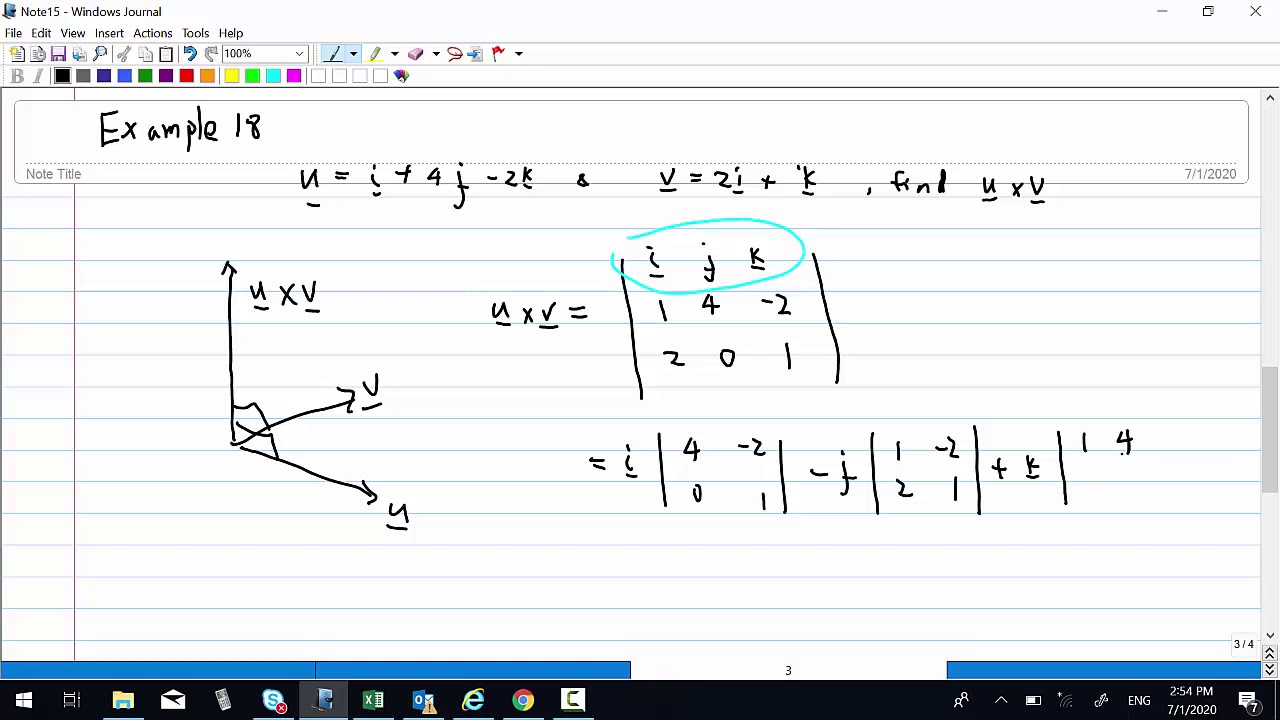 Note15 - Windows Journal
File Edit View Insert Actions Tools Help
100%
B I
Example 18
Note Title
7/1/2020
u = i + 4j - 2k & v = 2i + k , find u × v
u × v
v
u
u × v = | i j k |
| 1 4 -2 |
| 2 0 1 |
= i | 4 -2 | - j | 1 -2 | + k | 1 4
| 0 1 | | 2 1 | |
3 / 4
3
ENG
2:54 PM
7/1/2020
7